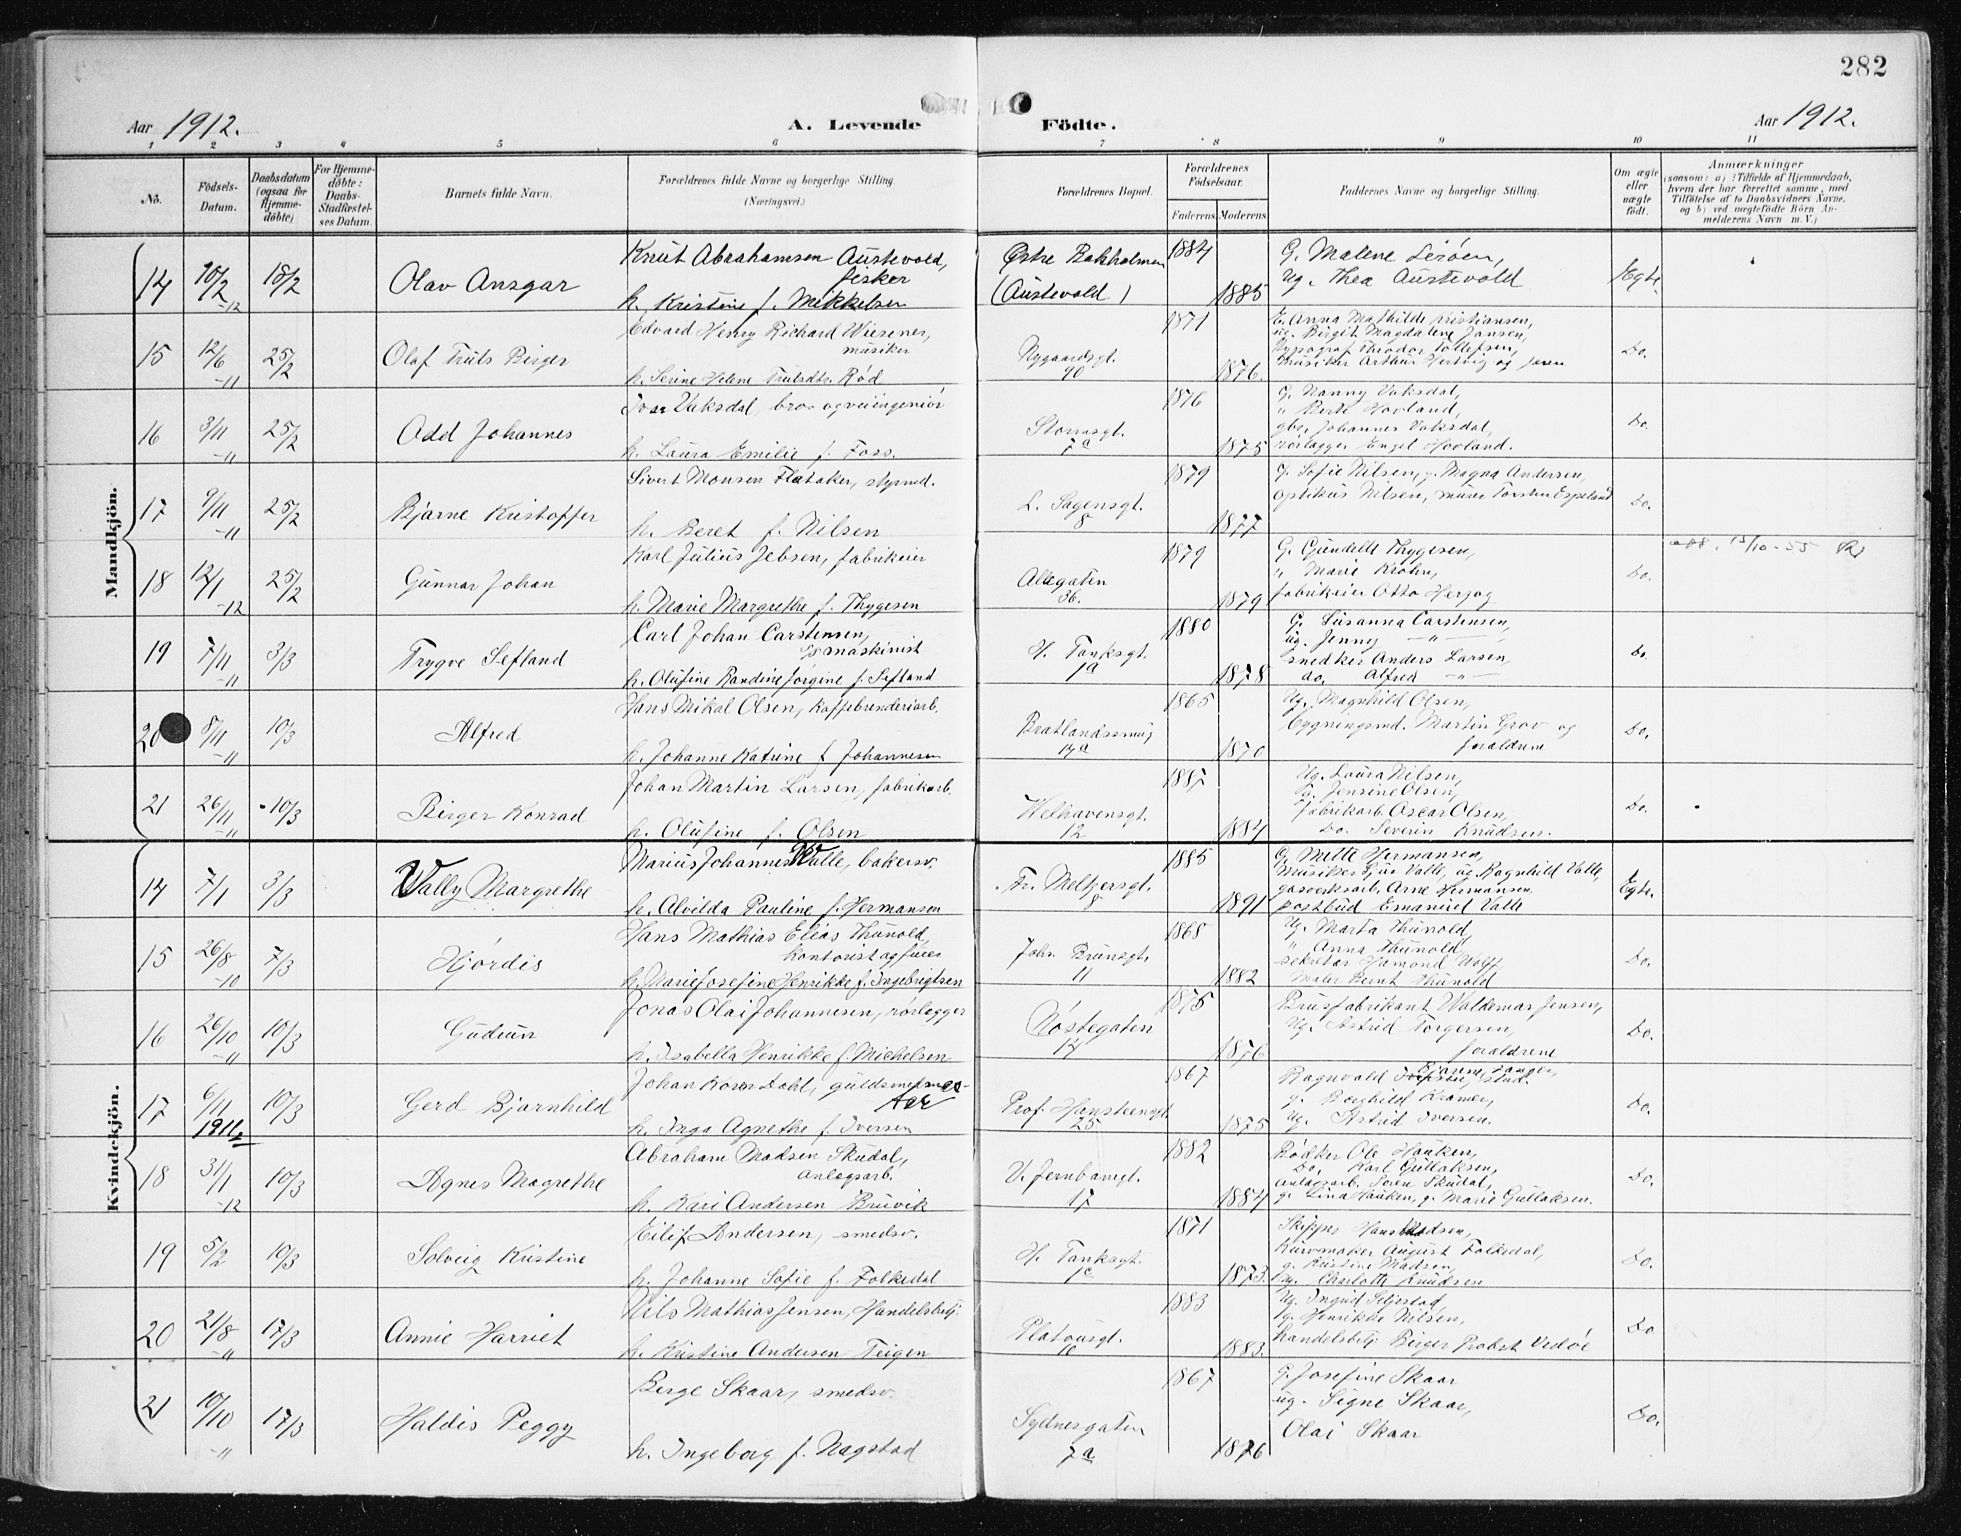 282
Aar 1912. A. Levende Födte. Aar 1912.
1 2 3 4 5 6 7 8 9 10 11
No. Födsels-Datum. Daabsdatum (ogsaa for Hjemmedöbte) For Hjemmedøbte: Daabs-Stadfæstelses Datum. Barnets fulde Navn. Forældrenes fulde Navne og borgerlige Stilling. (Næringsvei.) Forældrenes Bopæl. Forældrenes Födselsaar. Faderens. Moderens. Faddernes Navne og borgerlige Stilling. Om ægte eller uægte födt. Anmærkninger (saasom: a) i Tilfælde af Hjemmedaab, hvem der har forrettet samme, med Tilföielse af to Daabsvidners Navne. og b) ved uægtefödte Börn Anmelderens Navn m. V.)
Mandkjön.
Knut Abrahamsen Austevold, Østre Bakholmen 1884 G. Malene Lerøen,
14 10/2 -12 18/2 Olav Ansgar fisker ug. Thea Austevold Ægte.
h. Kristine f. Mikkelsen (Austevold) 1885
Edvard Henry Richard Wiesener, 1871 E. Anna Mathilde Kristiansen,
musiker ug. Birgit Magdalene Jansen,
15 12/6 -11 25/2 Olaf Truls Birger Nygaardsgt. 90 Typograf Theodor Tollefsen, Do.
h. Serine Helene Trulsdtr. Rød 1876. musiker Arthur Hertvig og faren
Ivar Vaksdal, bro- og veiingeniør 1876 G. Nanny Vaksdal,
" Berte Hovland,
16 3/11 -11 25/2 Odd Johannes Stormsgt. 7a gbr. Johannes Vaksdal, Do.
h. Laura Emilie f. Foss. 1875 rørlægger Engel Hovland.
Sivert Monsen Flataker, styrmd. 1879 g. Sofie Nilsen, g. Magna Andersen,
17 9/11 -11 25/2 Bjarne Kristoffer L. Sagensgt. 8 optikus Nilsen, murer Torsten Espeland Do.
h. Beret f. Nilsen 1877
Karl Julius Jebsen, fabrikeier 1879 G. Gundelle Thygesen, 13/10-55
18 12/1 -12 25/2 Gunnar Johan Allegaten 36. " Marie Krohn, Do.
h. Marie Margrethe f. Thygesen 1879 fabrikeier Otto Herzog
Carl Johan Carstensen, 1880 G. Susanna Carstensen,
maskinist ug. Jenny — " —
19 7/11 -11 3/3 Trygve Sefland H. Tanksgt. 1a snedker Anders Larsen, Do.
h. Olufine Randine Jørgine f. Sefland 1878 do. Alfred — " —
Hans Mikal Olsen, kaffebrenderiarb. 1865 Ug. Magnhild Olsen,
20 8/11 -11 10/3 Alfred Bratlandssmug 14a bygningsmd. Martin Grov og Do.
h. Johanne Katrine f Johannesen 1870 foraldrene
Johan Martin Larsen, fabrikarb. 1887 Ug. Laura Nilsen,
G. Jensine Olsen,
21 26/11 -11 10/3 Birger Konrad Welhavensgt. 12 fabrikarb. Oscar Olsen, Do.
h. Olufine f. Olsen 1884 Do. Severin Knudsen.
Kvindekjön.
Marius Johannes Valle, bakersv. 1885 G. Mette Hermansen,
musiker Gjur Valle, ug. Ragnhild Valle,
14 7/1 3/3 Vally Margrethe Fr. Meltzersgt. 8 gasverksarb. Arne Hermansen Egte.
h. Alvilda Pauline f. Hermansen 1891 postbud Emanuel Valle
Hans Mathias Elias Thunold, 1868 Ug. Marta Thunold,
kontorist " Anna Thunold,
15 26/8 -10 7/3 Hjørdis John Brunsgt. 11 sekretær Hamond Wolff Do.
h. Marie Josefine Henrikke f. Ingebrigtsen 1882 Maler Bernt Thunold
Jonas Olai Johannesen, rørlegger 1875 Brusfabrikant Waldemar Jensen,
16 26/10 -11 10/3 Gudrun Nøstegaten 14 Ug. Astrid Torgersen, Do.
h. Isabella Henrikke f. Michelsen 1876 foraldrene
Johan Dahl, guldsmedmester 1867 Ragnvald Iversen, stud.
17 6/11 1911 10/3 Gerd Bjarnhild Prof. Hansteensgt. 25 g. Borghild Kramer, Do.
h. Inga Agnethe f. Iversen 1875 Ug. Astrid Iversen.
Abraham Madsen Skudal, 1882 Bødker Ole Hauken,
anlægsarb. Do. Karl Gullaksen,
18 31/1 -12 10/3 Agnes Magrethe V. Jernbanegt. 17 anlægsarb. Søren Skudal, Do.
h. Kari Andersen Bruvik 1884 g. Lina Hauken, g. Marie Gullaksen.
Eilif Andersen, smedsv. 1871 Skipper Hans Madsen,
Kurvmaker August Folkedal,
19 5/2 10/3 Solveig Kristine H. Tanksgt. 1c g. Kristine Madsen, Do.
h. Johanne Sofie f. Folkedal 1873. ug. Charlotte Knudsen
Nils Mathias Jensen, Handelsbetj. 1883 Ug. Ingrid Seljestad,
Ug. Henrikke Nilsen,
20 21/8 -11 17/3 Annie Harriet Platousgt. 10 handelsbetj. Birger Probst Vedøe Do
h. Kristine Andersen Teigen 1883.
Berge Skaar, smedsv. 1867 G. Josefine Skaar
ug. Signe Skaar,
21 10/10 -11 17/3 Haldis Peggy Sydnesgaten 7a Olai Skaar Do.
h. Ingeborg f. Nagstad 1876